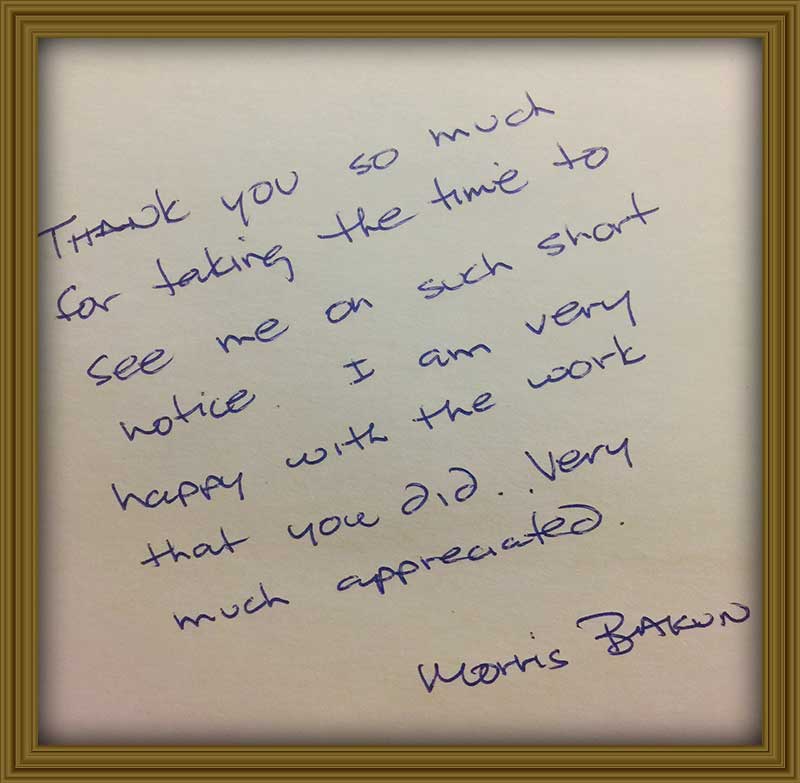 THANK YOU so much
for taking the time to
see me on such short
notice. I am very
happy with the work
that you did. Very
much appreciated.
Morris BAKUN